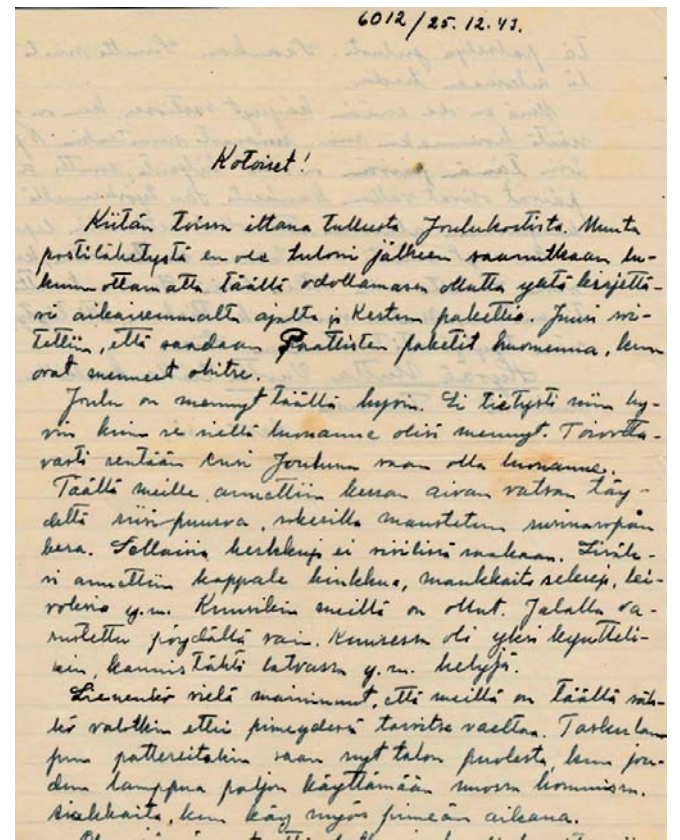 6012/25.12.43.
Kotoiset!
Kiitän toissa iltana tullusta Joulukortista. Muuta
postilähetystä en ole tuloni jälkeen saanutkaan lu-
kuunottamatta täällä odottamassa ollutta yhtä kirjettä-
si aikaisemmalta ajalta ja Kertun pakettia. Juuri soi-
tettiin, että saadaan Paattisten paketit huomenna, kun
ovat menneet ohitse.
Joulu on mennyt täällä hyvin. Ei tietysti niin hy-
vin kuin se siellä luonanne olisi mennyt. Toivotta-
vasti sentään ensi Jouluna saan olla luonanne.
Täällä meille annettiin kerran aivan vatsan täy-
deltä riisipuuroa, sokerilla maustetun
kera. Sellaisia herkkuja ei siviilissä saakaan. Lisäk-
si annettiin kappale kinkkua, maukkaita sekeleja, lei-
voksia y.m. Kuusikin meillä on ollut. Jalalla va-
rustettu pöydällä vain. Kuusessa oli yksi kyntteli-
kin, kaunis tähti latvassa y.m. helyjä.
Lienenkö vielä maininnut, että meillä on täällä säh-
kö valotkin ettei pimeydessä tarvitse vaeltaa. Taskulam
pun pattereitakin saan nyt talon puolesta, kun jou-
dun lamppua paljon käyttämään
kun käy myös pimeän aikana.